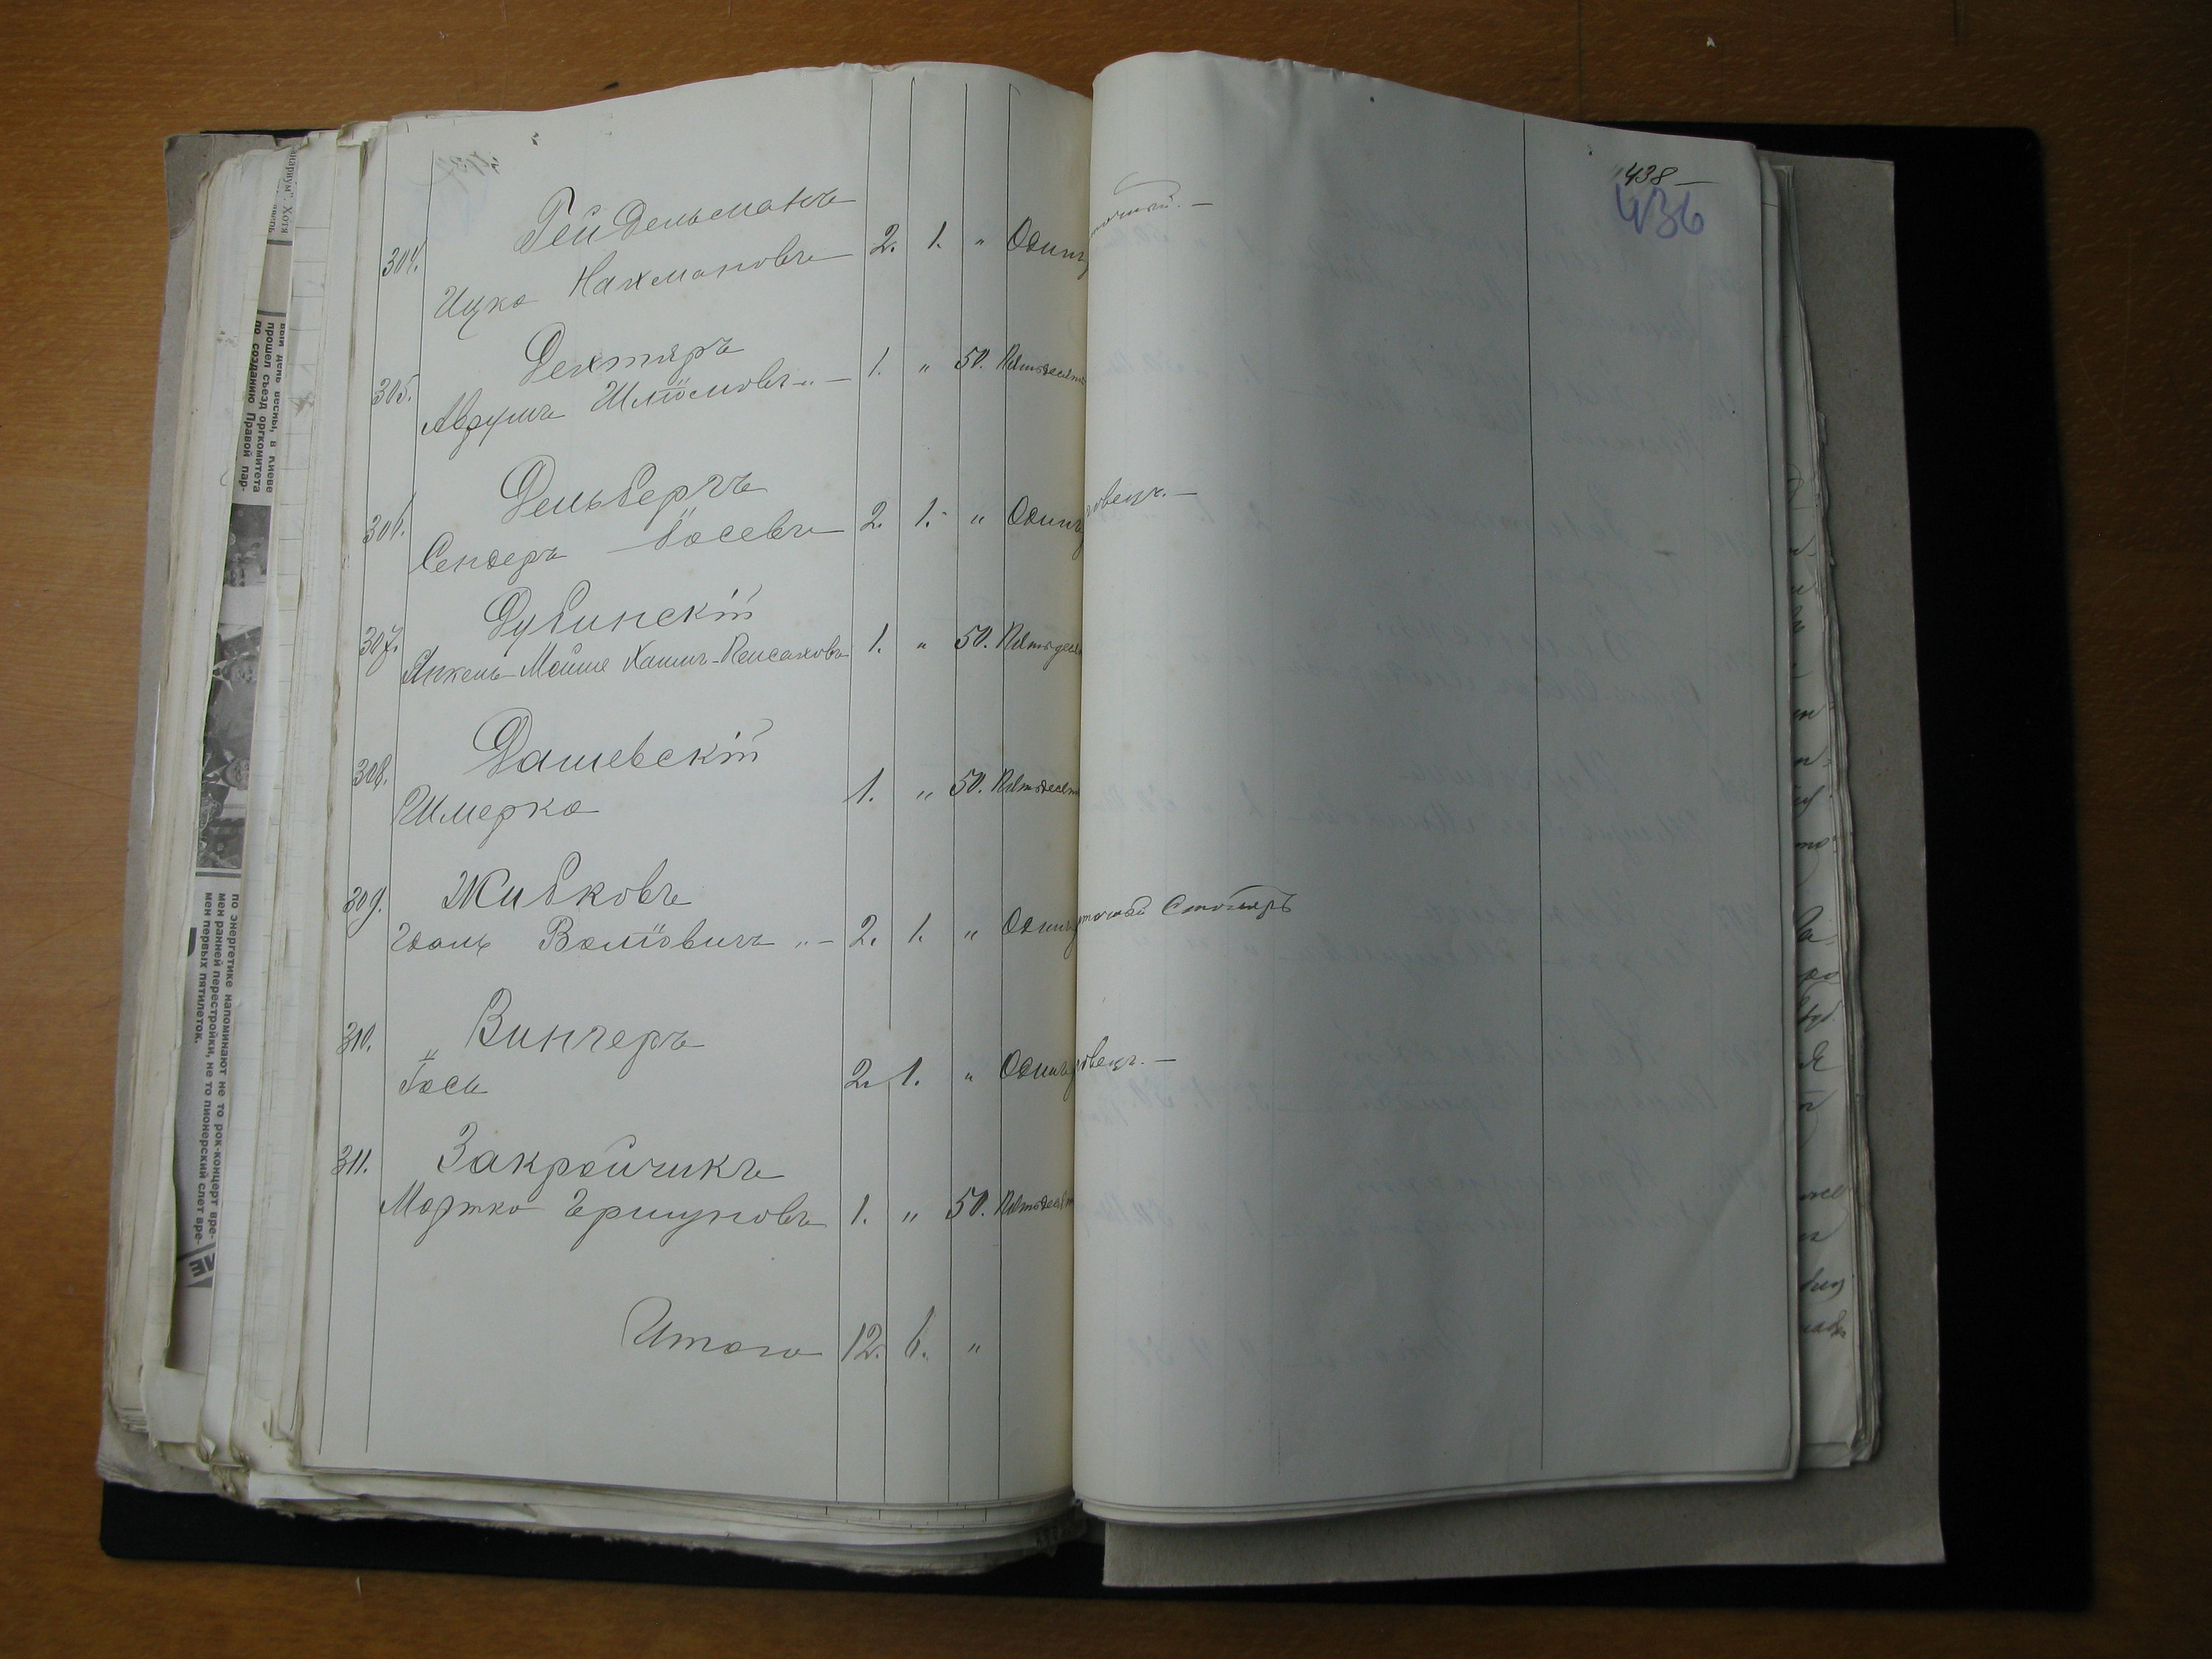 304. Гейдельманъ
Ицко Нахмановъ 2. 1. " Одинъ
305. Дехтяръ
Аврумъ Шліомовъ " — 1. " 50. Пятьдесят
306. Дельбергъ
Сендеръ Іосевъ 2. 1. " Одинъ
307. Дубинскій
Янкель Мойше Хаимъ-Пейсаховъ 1. " 50. Пятьдеся
308. Дашевскій
Шмерко 1. " 50. Пятьдесят
309. Живковъ
Удаль Воліовичъ " — 2. 1. " Одинъ
310. " Зингеръ
Іось 2. 1. " Одинъ
311. Закройчикъ
Мортко Гершуновъ 1. " 50. Пятьдесят
Итого 12. 6. "
438 —
436
овецъ. —
точный Столяръ
овецъ. —
вый день весны, в Киеве
прошел съезд оргкомитета
по созданию Правой пар-
по энергетике напоминают не то рок-концерт вре-
мен ранней перестройки, не то пионерский слет вре-
мен первых пятилеток.